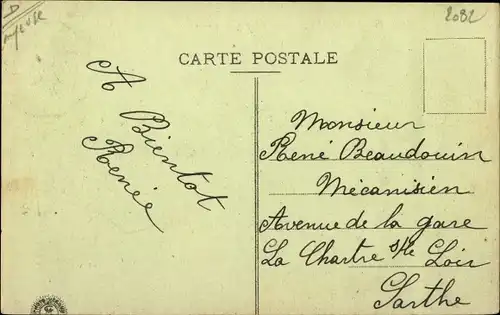 2082
CARTE POSTALE
A Bientot
Renée
Monsieur
René Beaudouin
Mécanisien
Avenue de la gare
La Chartre s/le Loir
Sarthe